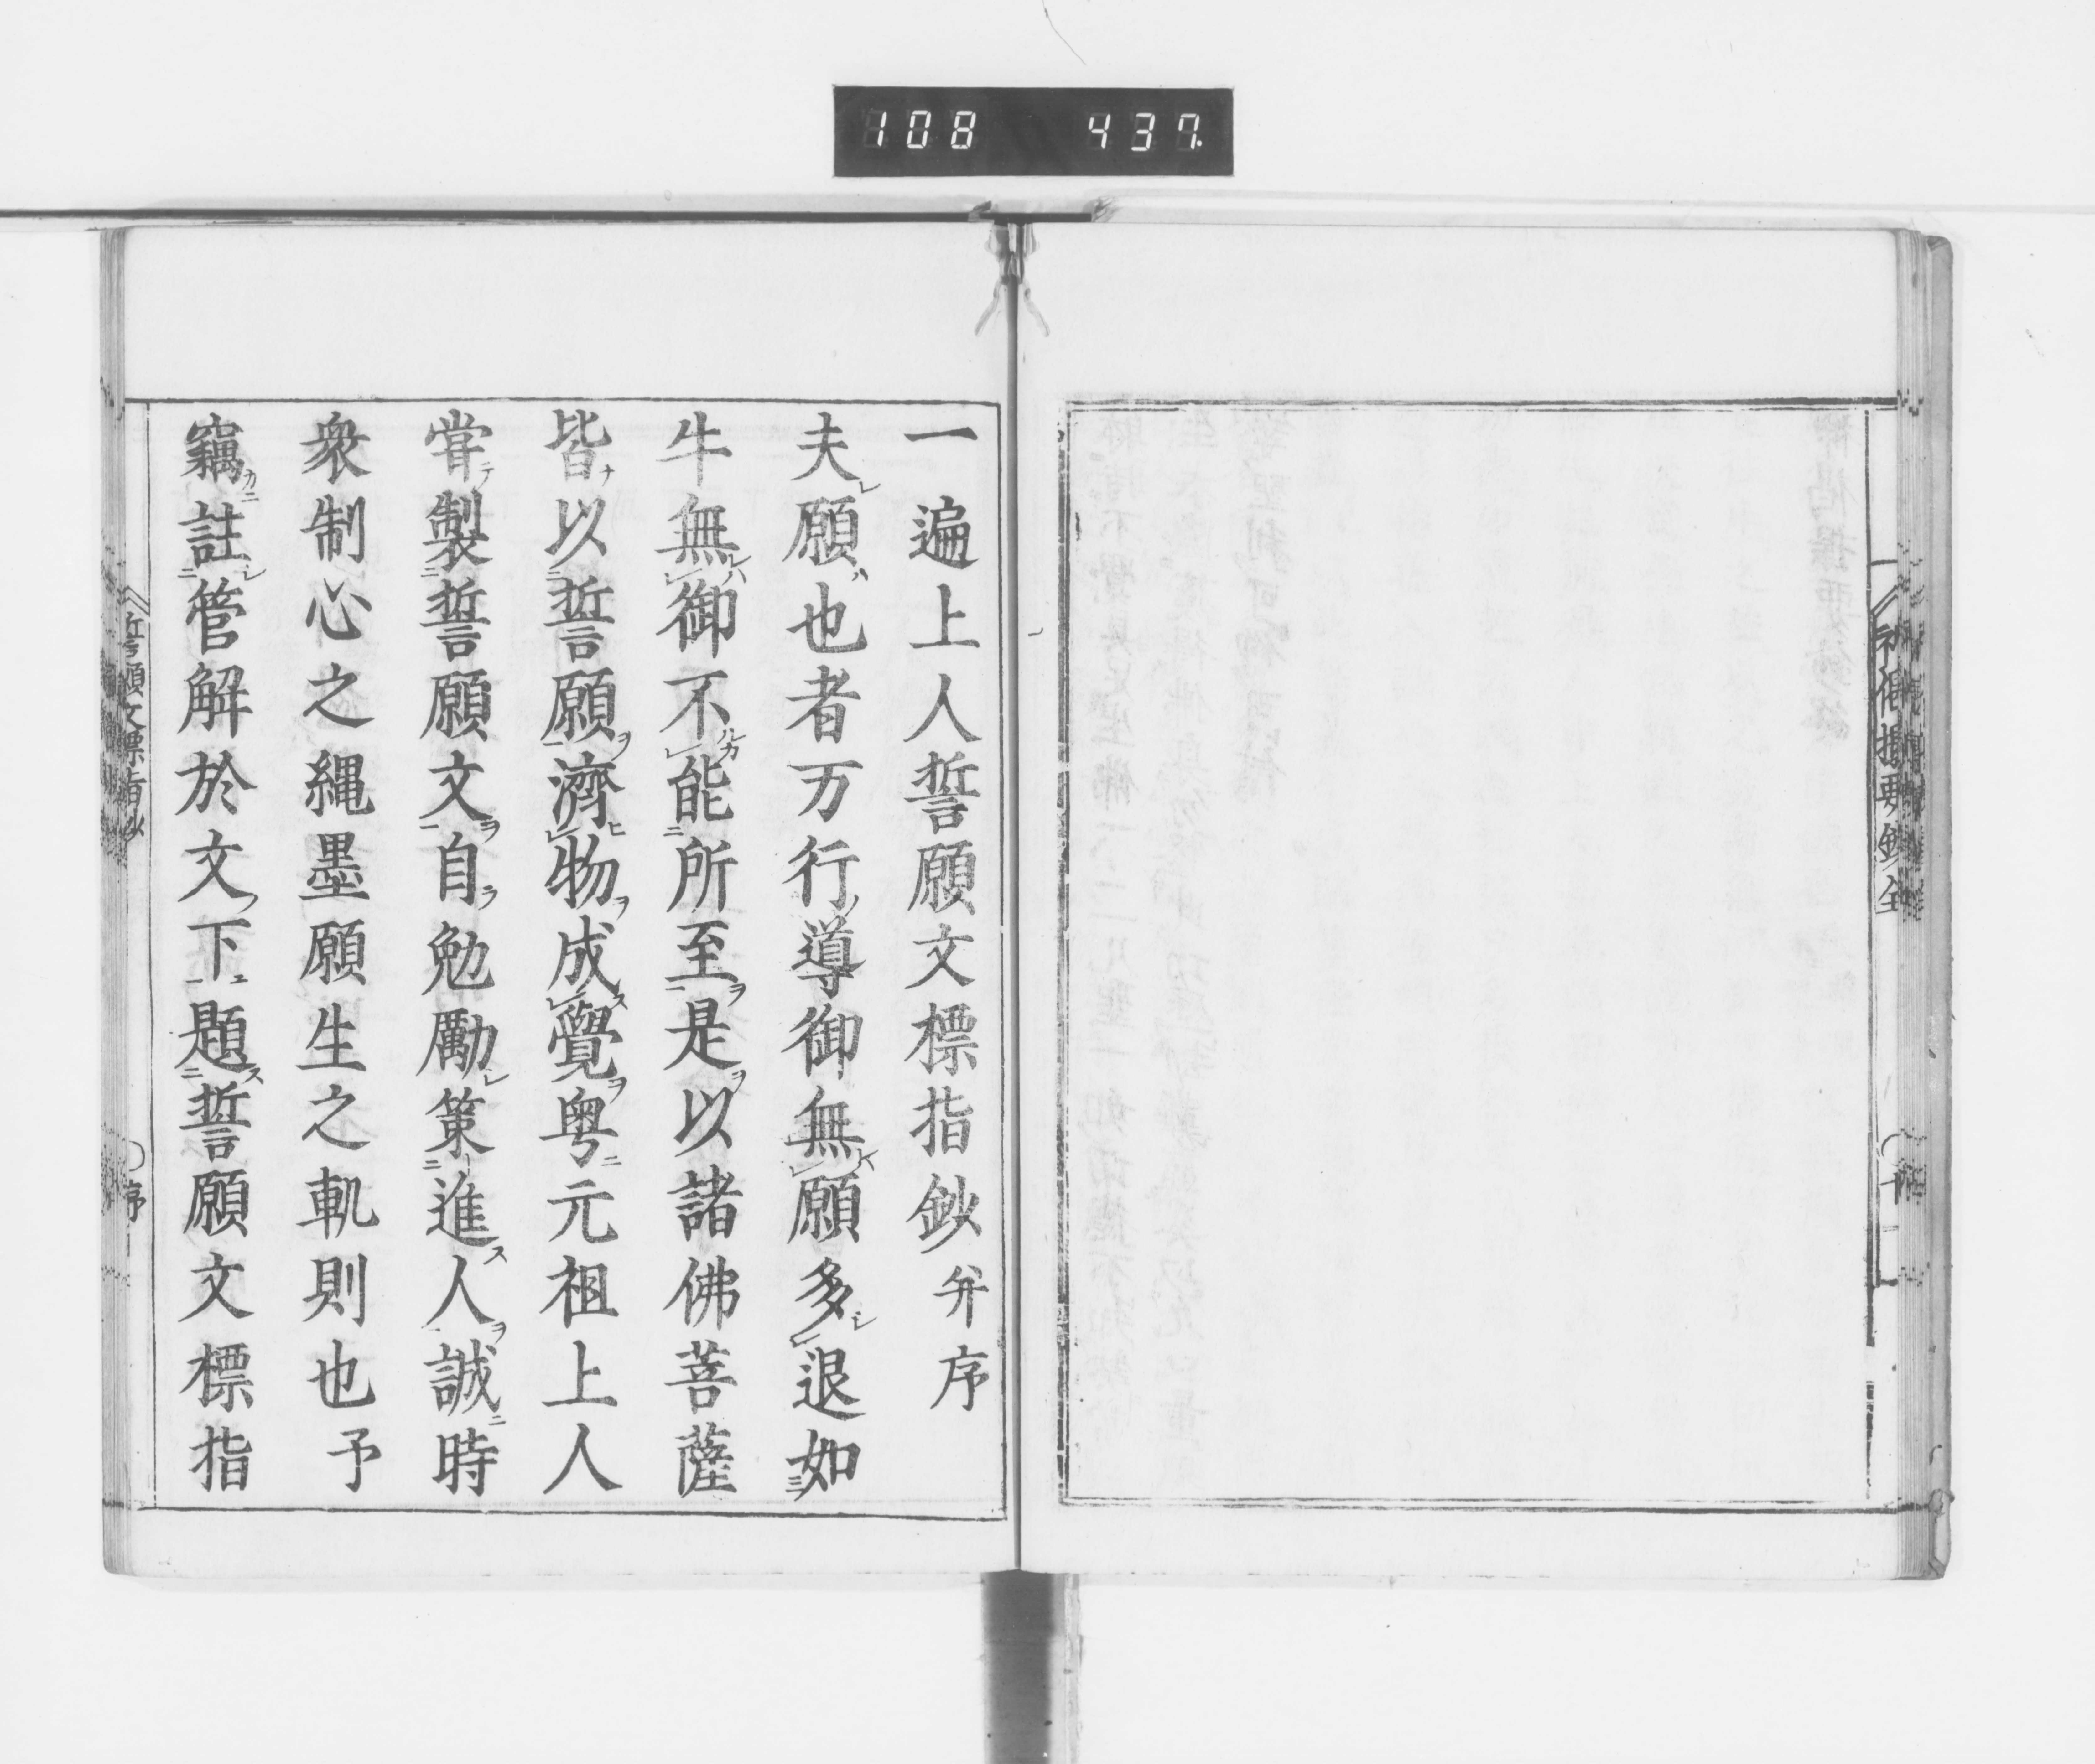 108 437
一遍上人誓願文標指鈔 并序
夫願也者万行導御無願多退如
牛無御不能所至是以諸佛菩薩
皆以誓願濟物成覺粤元祖上人
甞製誓願文自勉勵策進人誠時
衆制心之縄墨願生之軌則也予
竊註管解於文下題誓願文標指
誓願文標指鈔
序